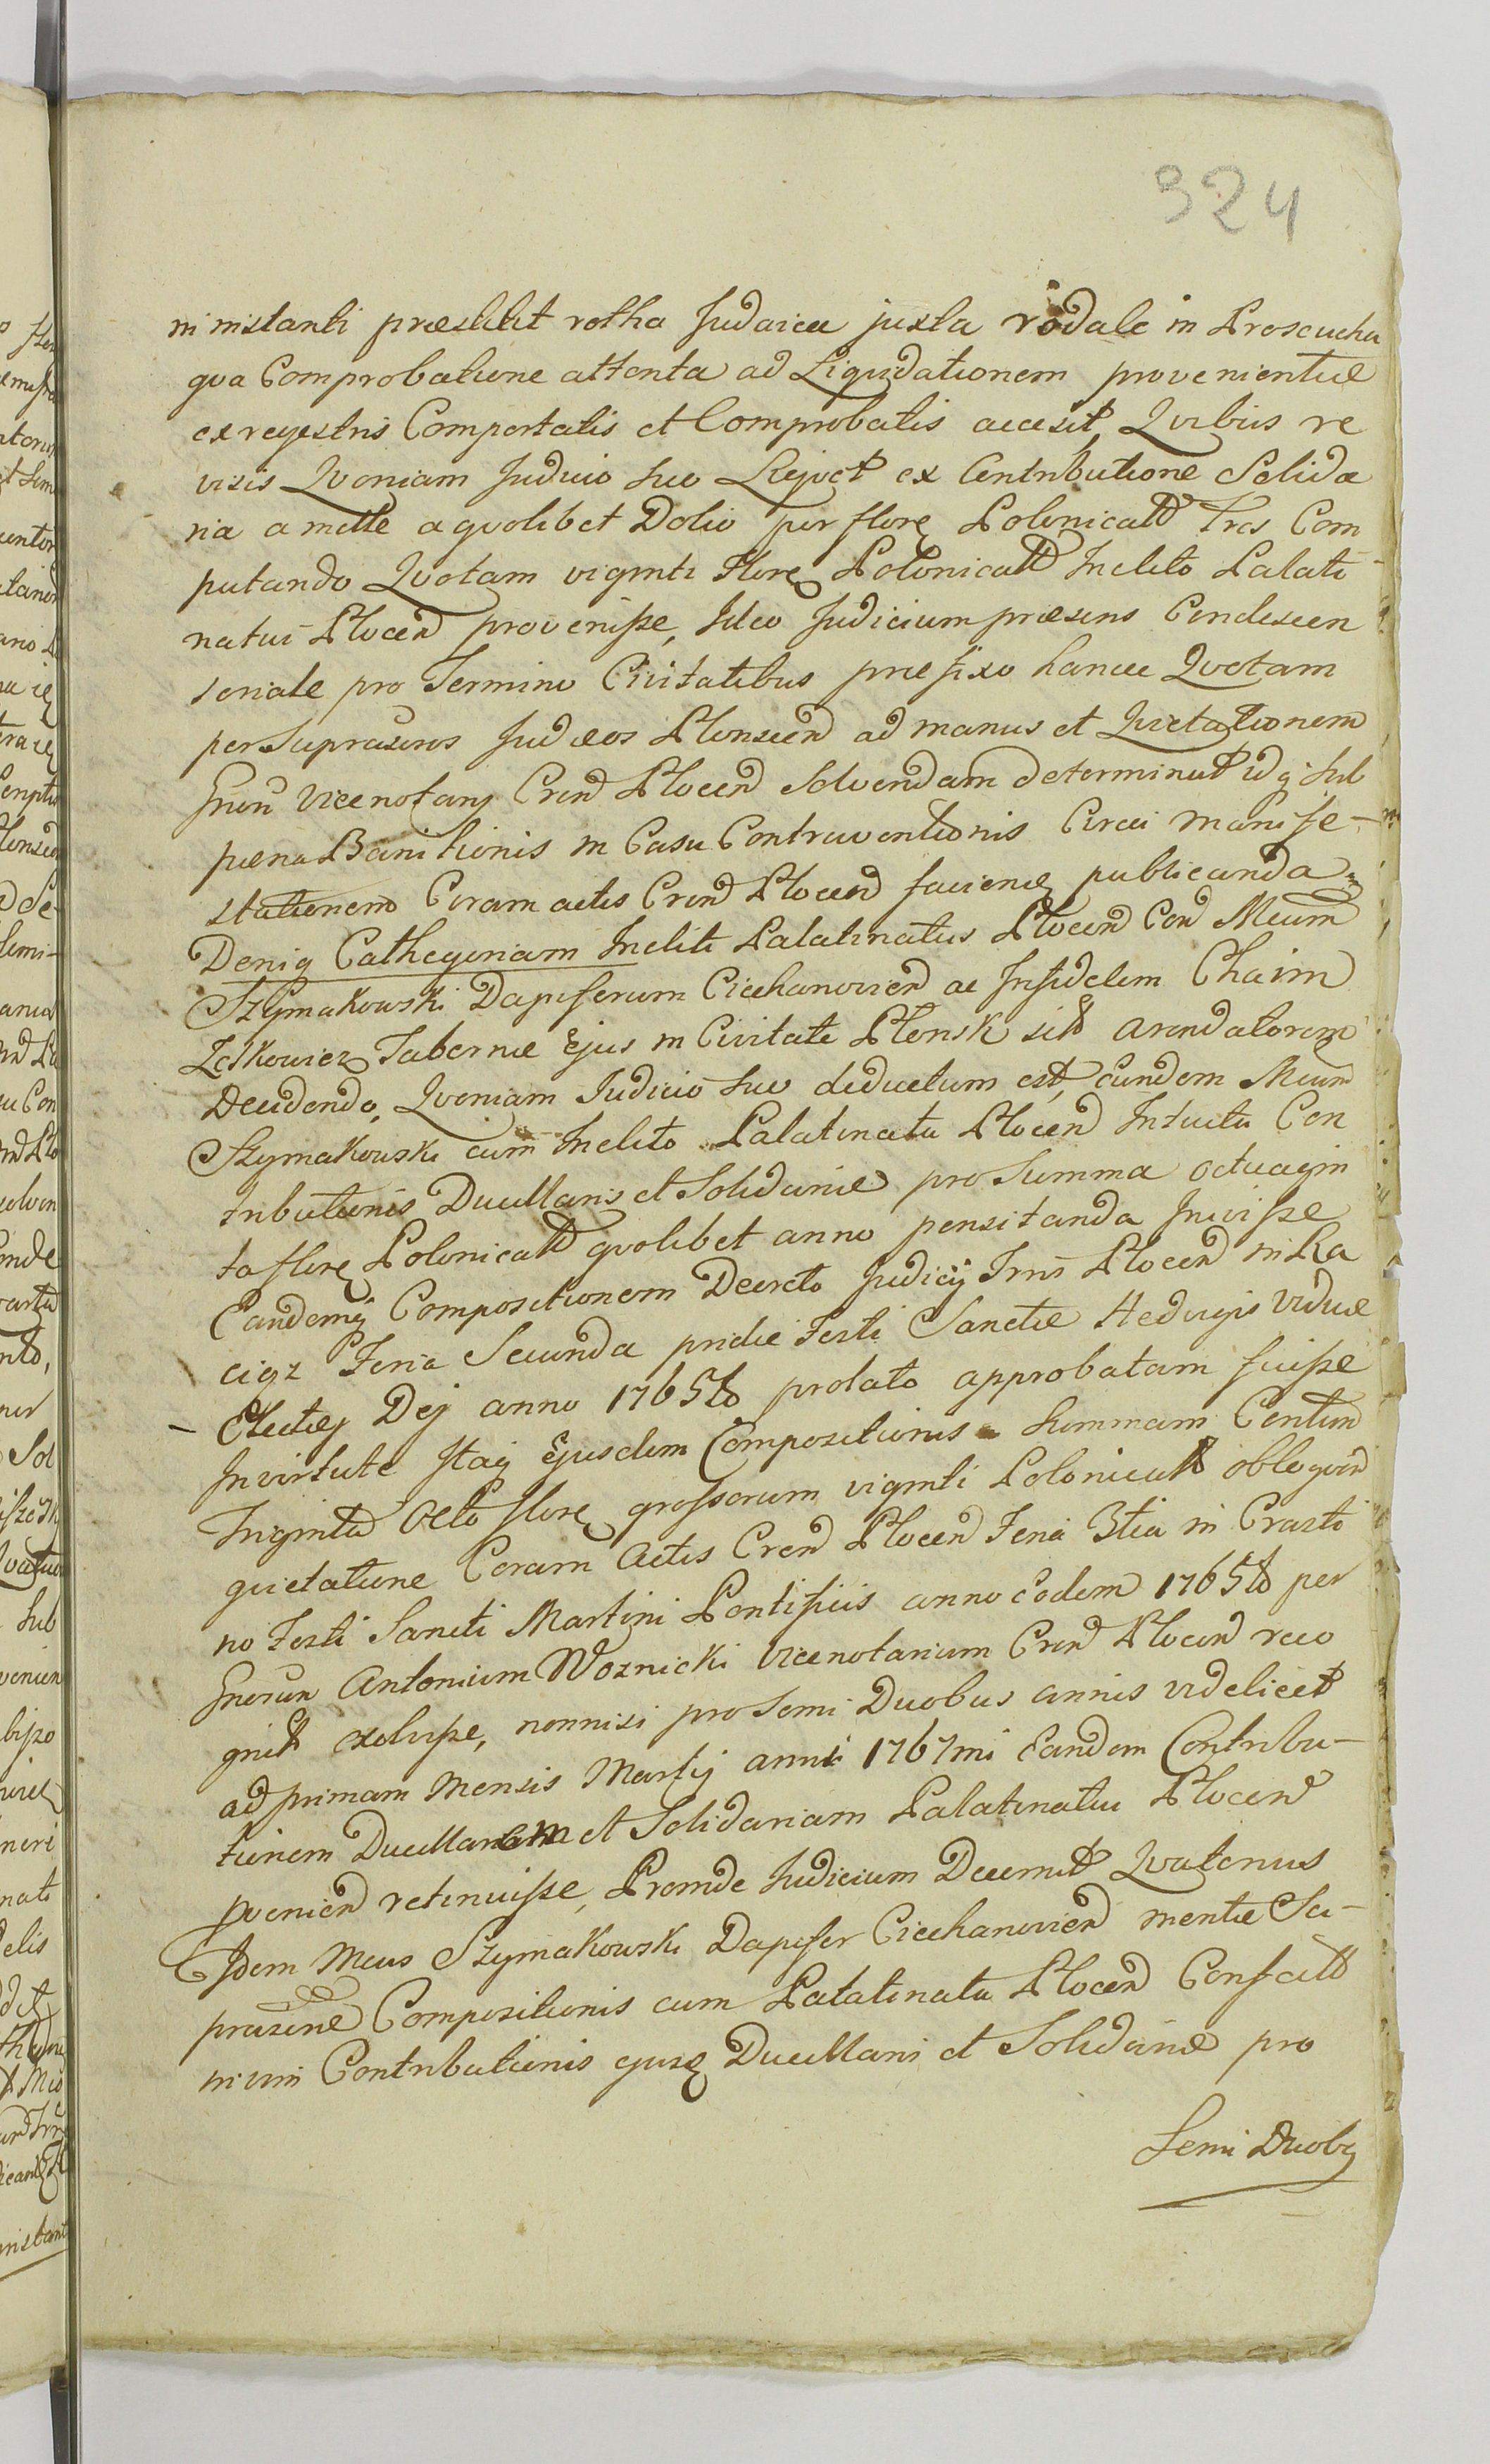 324
in instanti præstitit rotha Judaicæ juxta rodale in Proseucha
qva Comprobatione attenta ad Liqvidationem provenientiæ
ex regestris Comportatis et Comprobatis accesit, Qvibus re
visis Qvoniam Judicio huo Rejvet ex Contributione Solida
ria a melle a qvolibet Dolio per flore Polonicald Tres Com
putando Qvotam viginti flore Polonicald Inclito Palati
natui Plocen provenisse, Ideo Judicium præsens Condescen
soriale pro Termino Civitatibus præfixo hancce Qvotam
per Suprascros Judæos Plonscen ad manus et Qvietationem
Gnen Vicenotarij Cren Plocen Solvendam determinat idq sub
pæna Banitionis in Casu Contraventionis Circa manife-
stationem Coram actis Cren Plocen faciend publicanda
Deniq Cathegoriam Incliti Palatinatus Plocen Con Mcum
Szymakowski Dapiferum Ciechanovien ac Infidelem Chaim
Leskowicz Tabernæ Ejus in Civitate Plonsk sit Arendatorem
Decidendo, Qvoniam Judicio huo deductum est, Eundem Mcum
Szymakowski cum Inclito Palatinatu Plocen Intuitu Con
tributionis Ducillaris et Solidariæ pro Summa octuagin
ta flore Polonicald qvolibet anno pensitanda Inivisse
Eandemq Compositionem Decreto Judicij Trnis Plocen in Ra
ciąz Feria Secunda pridie Festi Sanctæ Hedvigis Viduæ
- Electæq Dei anno 1765to prolato approbatam fuisse
In virtute Itaq Ejusdem Compositionis Summam Centum
Triginta Octo flore grossorum viginti Polonicald obloqven
qvietatione Coram Actis Cren Plocen Feria 3tia in Crasti
no Festi Sancti Martini Pontificis anno eodem 1765to per
Gnosum Antonium Woznicki Vicenotarium Cren Plocen reco
gnit exolvisse, nonnisi pro Semi Duobus annis videlicet
ad primam Mensis Martij anni 1767mi Eandem Contribu-
tionem Ducillarem et Solidariam Palatinatui Plocen
pvenien retinuisse, Proinde Judicium Decernit Qvatenus
Idem Mcus Szymakowski Dapifer Ciechanovien mente Su-
prascræ Compositionis cum Palatinatu Plocen
nium Contributionis ejusq Ducillaris et Solidariæ pro
Semi Duobq